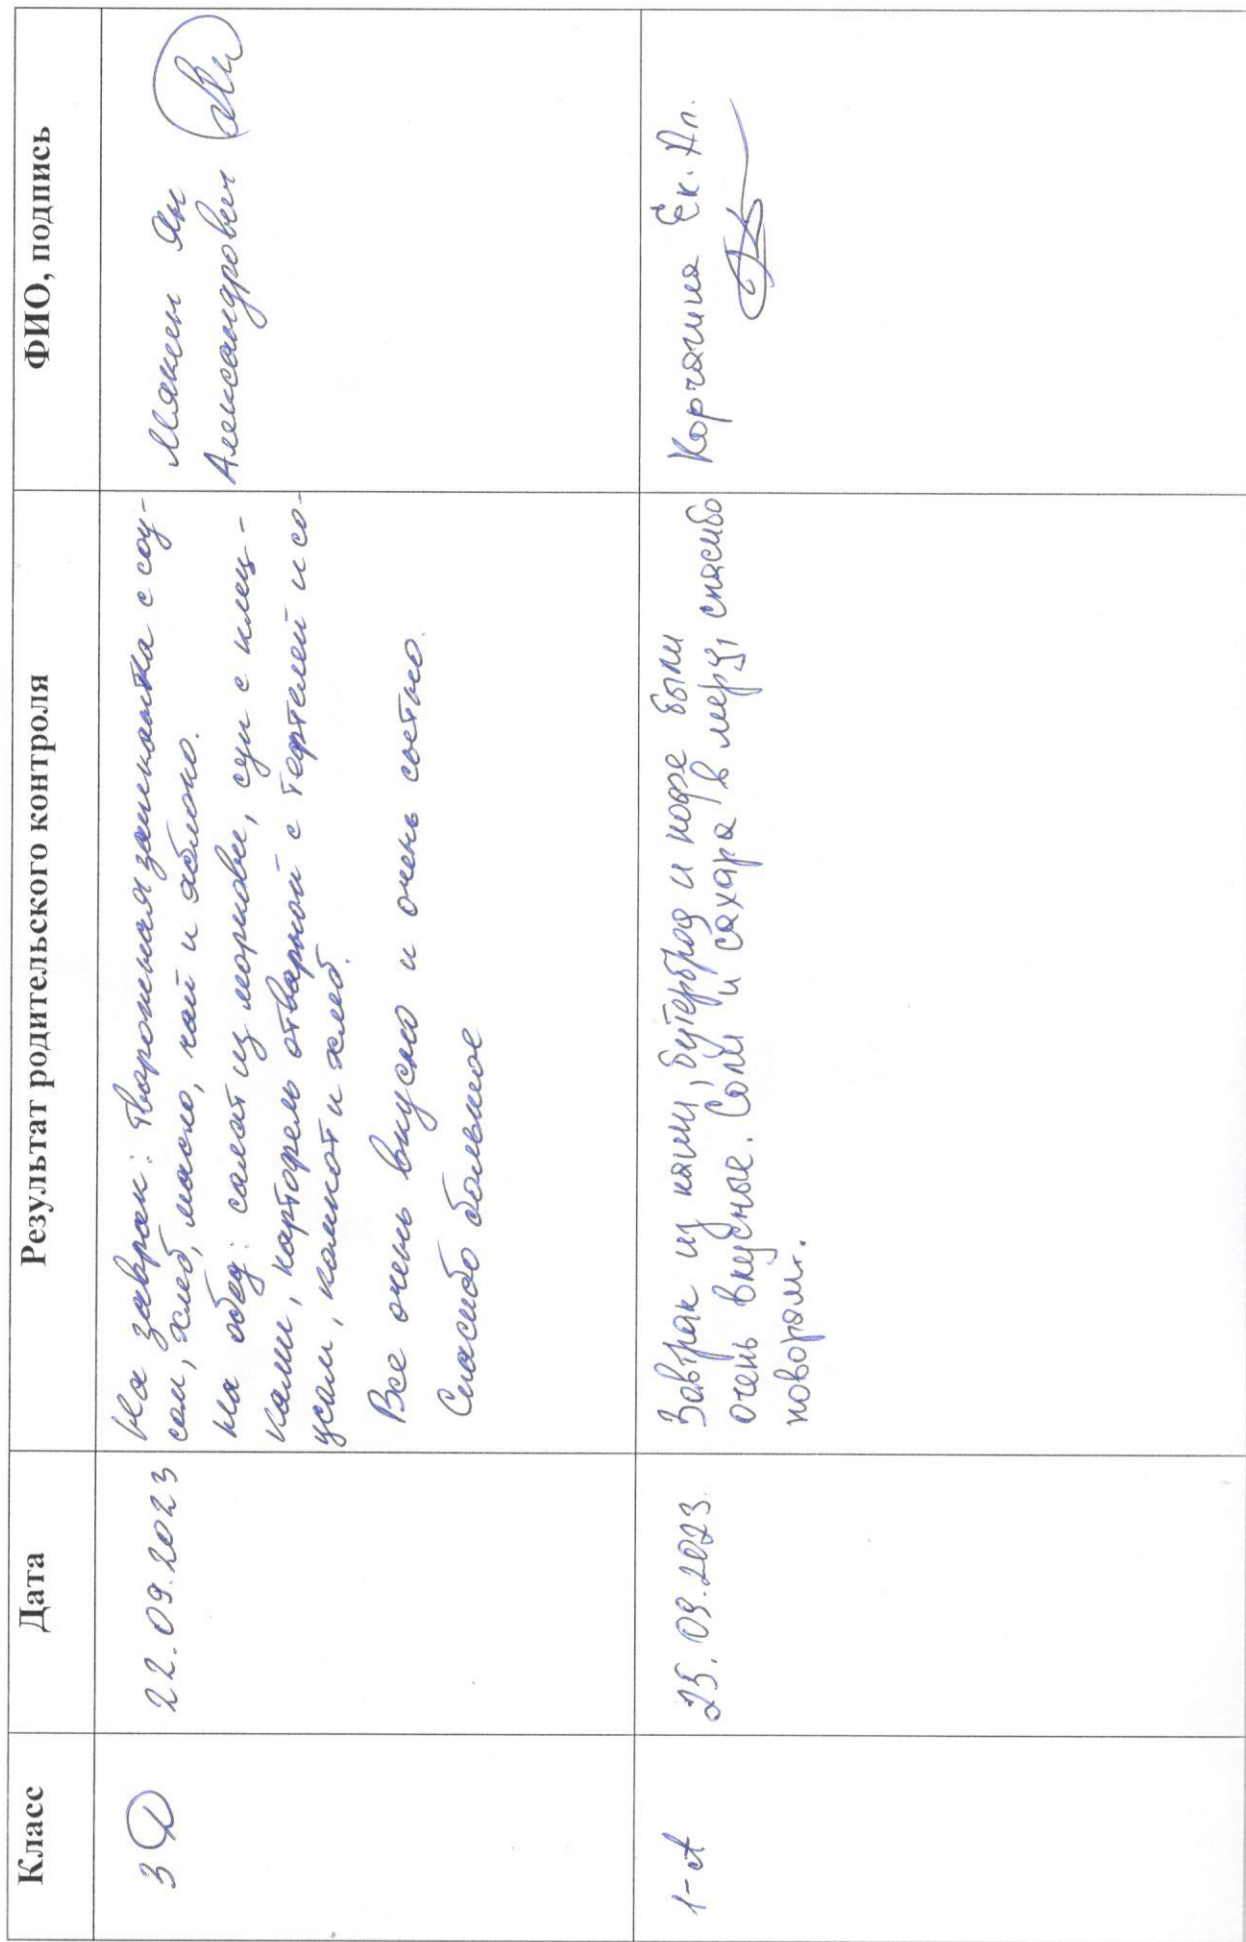 Класс Дата Результат родительского контроля ФИО, подпись
3 Д 22.09.2023
На завтрак: творожная запеканка с соу-
сом, хлеб, масло, чай и яблоко.
На обед: салат из моркови, суп с клец-
ками, картофель отварной с тефтелей и со-
усом, компот и хлеб.
Все очень вкусно и очень сытно.
Спасибо большое
Ян
Александрович
1-А 25.09.2023.
Завтрак из каши, бутерброд и кофе были
очень вкусные. Соли и сахара в меру, спасибо
поворам.
Корчагина Ек. Ал.